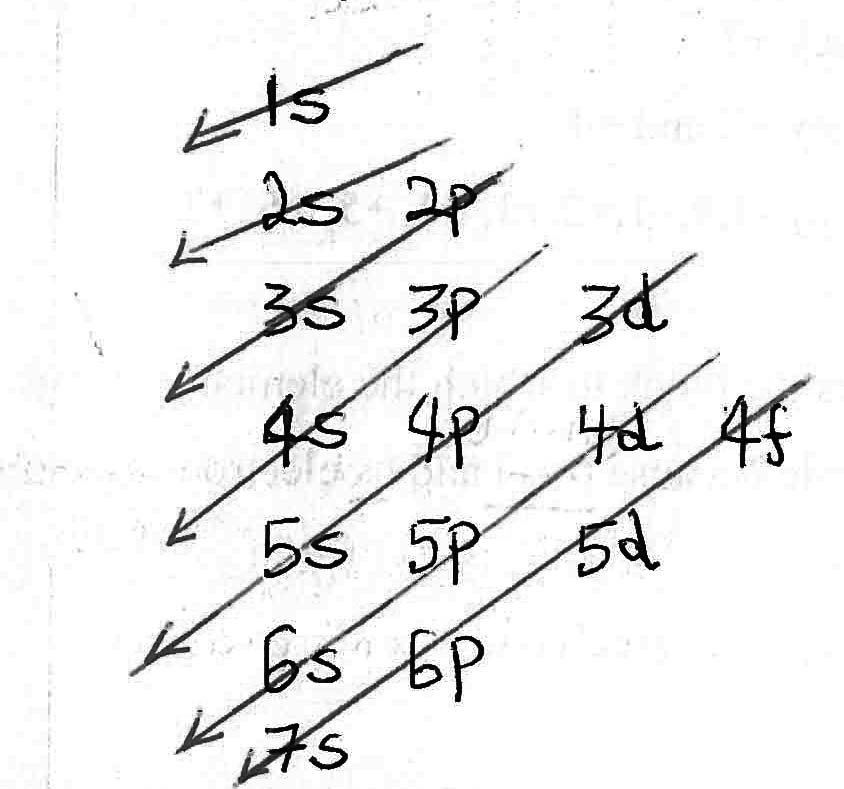 1s
2s 2p
3s 3p 3d
4s 4p 4d 4f
5s 5p 5d
6s 6p
7s